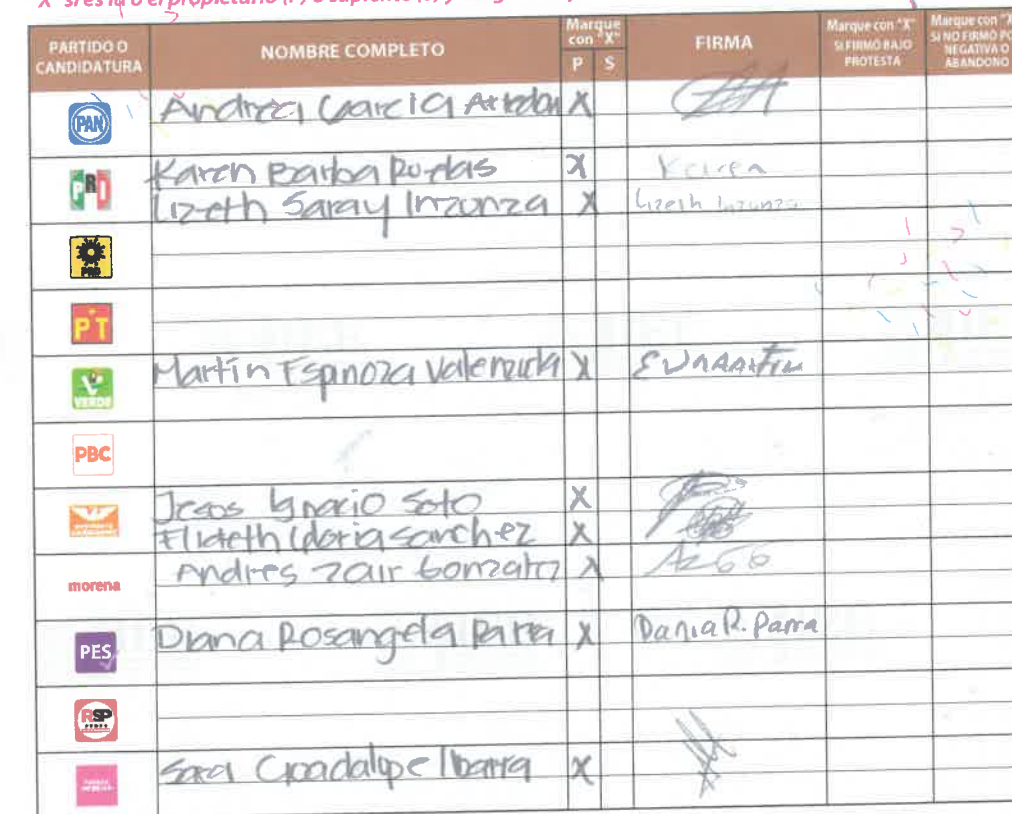 "X" si es la o el propietario (P) o suplente (S)
PARTIDO O CANDIDATURA NOMBRE COMPLETO Marque con "X" P S FIRMA Marque con "X" SI FIRMÓ BAJO PROTESTA Marque con "X" SI NO FIRMÓ POR NEGATIVA O ABANDONO
PAN Andrea Garcia X
PRI Karen Barba Ruelas X Karen
Lizeth Saray Inzunza X Lizeth Inzunza
PRD
PT
VERDE Martín Espinoza Valenzuela X
PBC
Jesus Ignacio Soto X
Elideth Idaria Sanchez X
morena Andres Zair Gonzalez X AZGG
PES Diana Rosangela Parra X Dania R. Parra
RSP
Sara Guadalupe Ibarra X